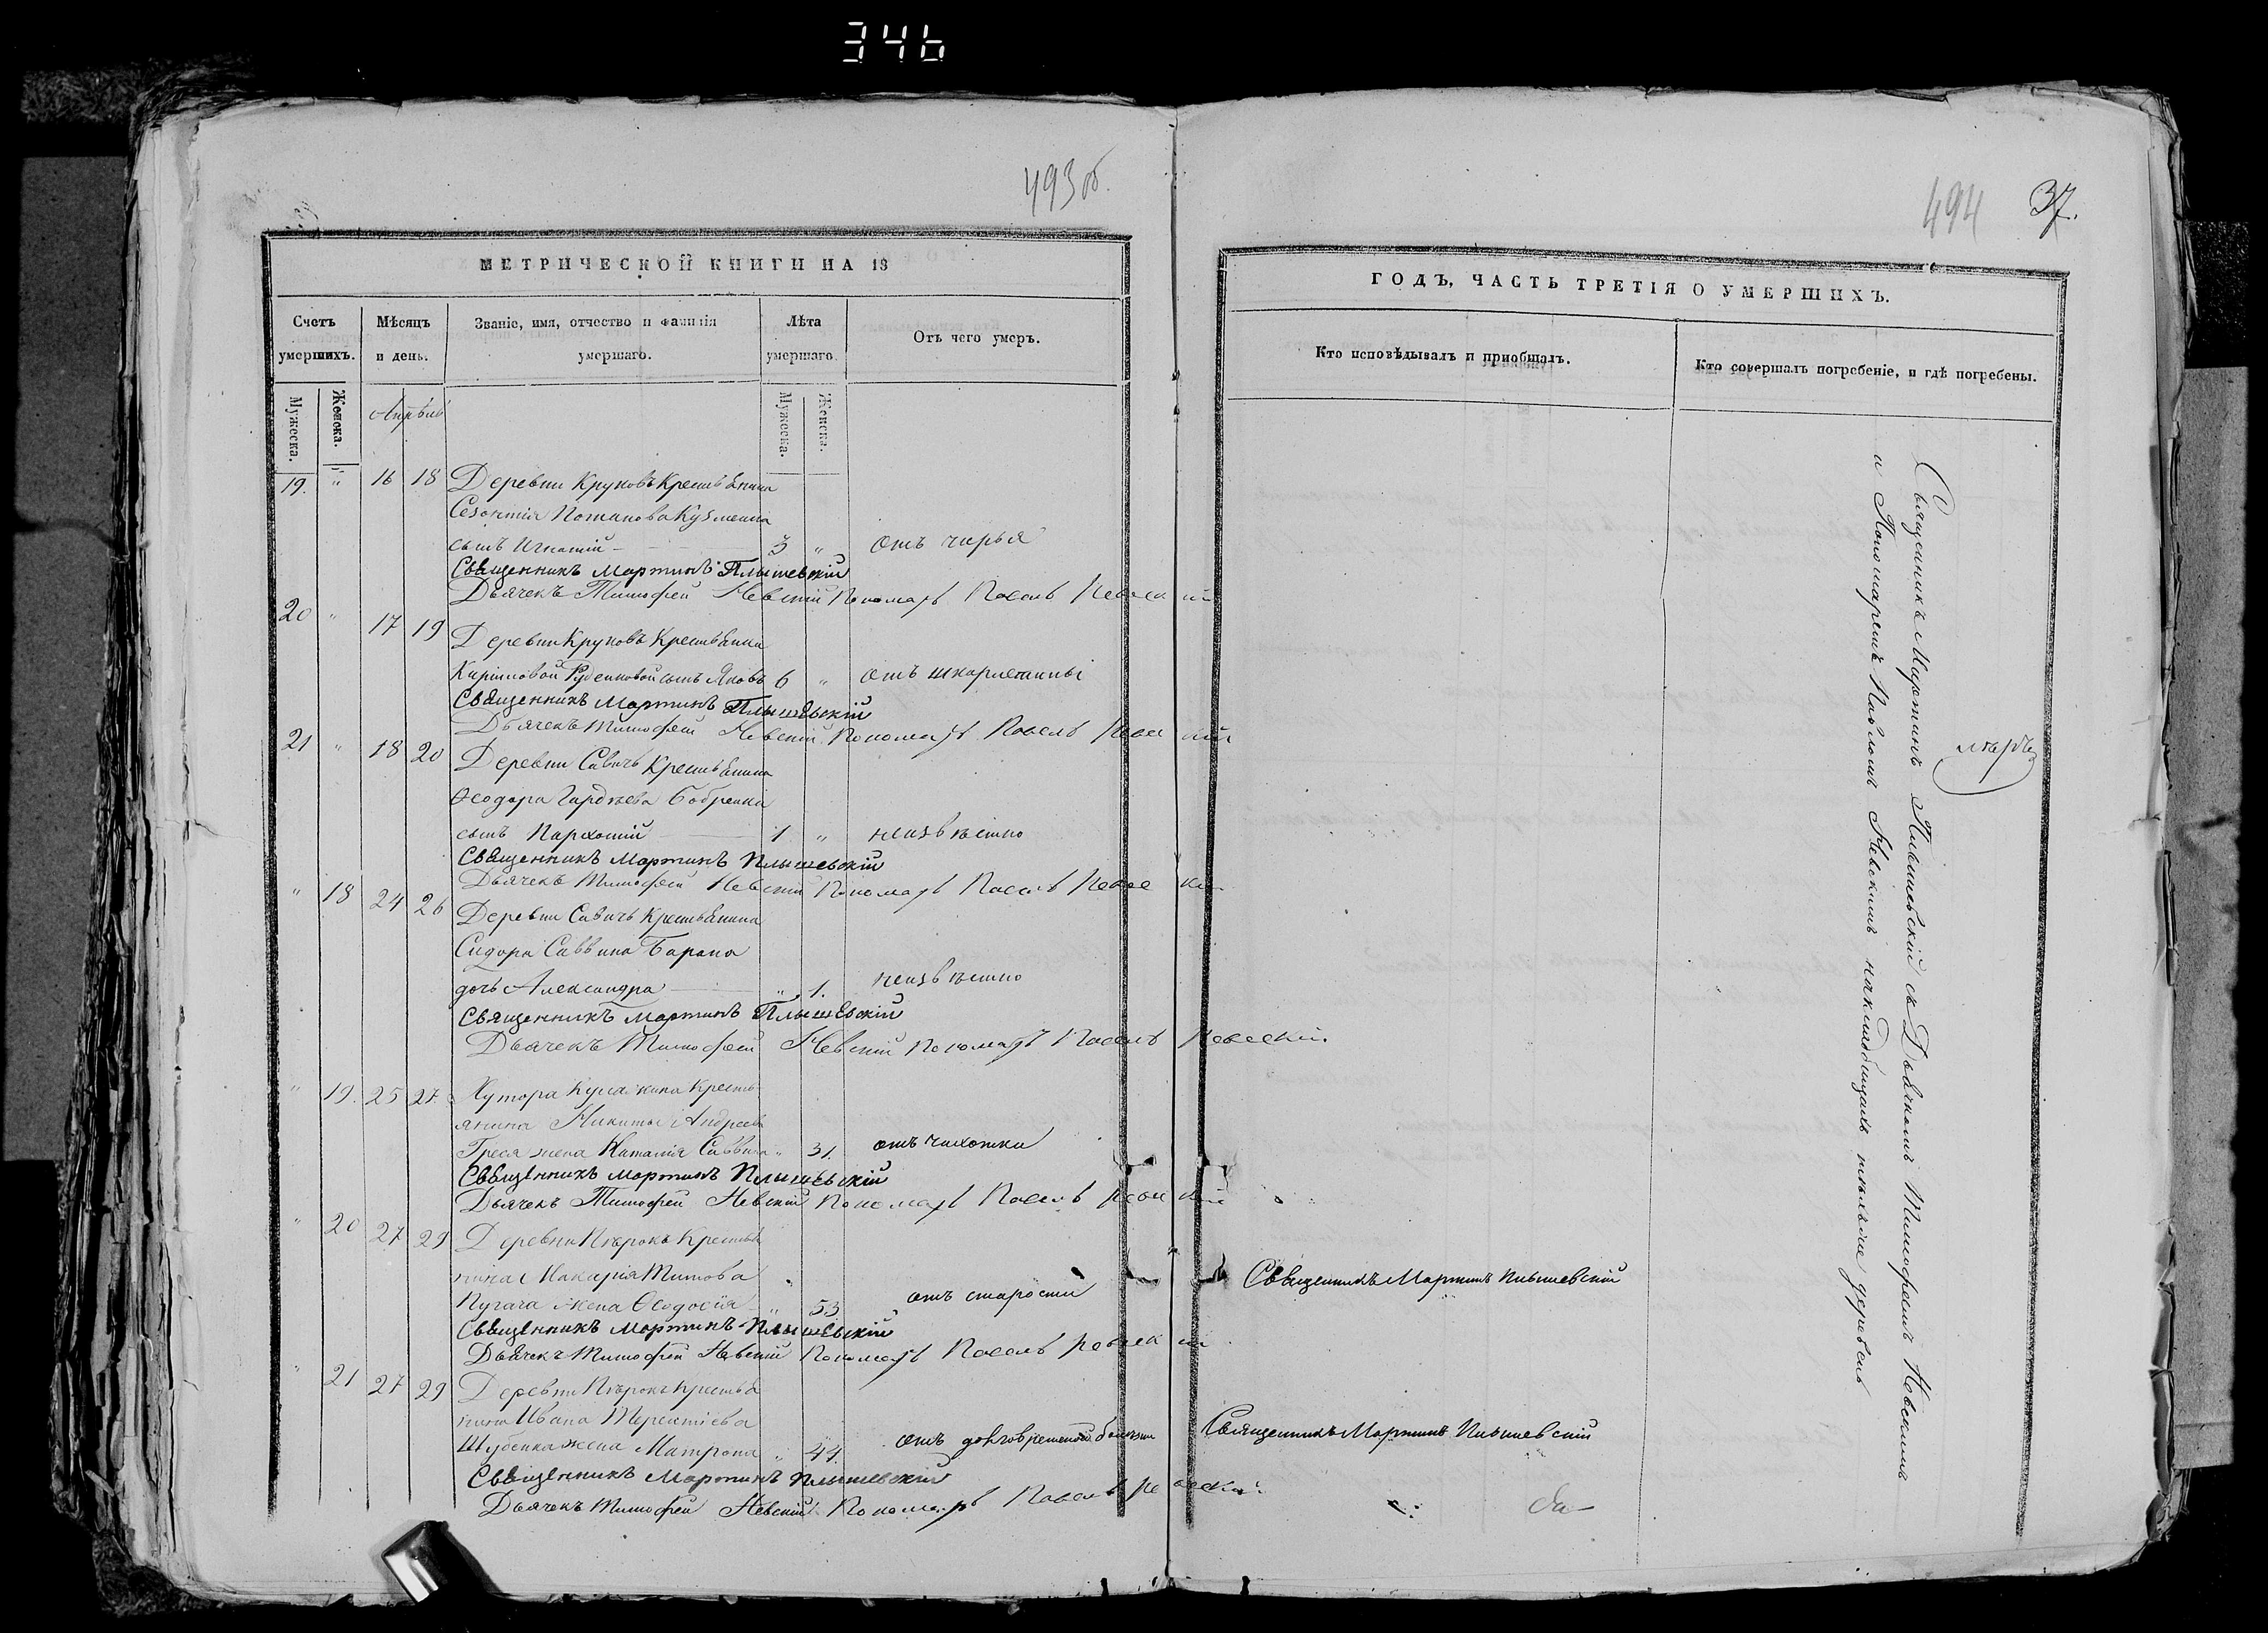 346
493 об.
МЕТРИЧЕСКОЙ КНИГИ НА 18
Счетъ умершихъ.
Мѣсяцъ и день.
Званіе, имя, отчество и фамилія умершаго.
Лѣта умершаго.
Отъ чего умеръ.
Мужеска.
Женска.
Мужеска.
Женска.
Апрѣль
19. " 16 18 Деревни Круковъ Крестьянина
Созонтія Потапова Кузменка
сынъ Игнатій - 3 " отъ чирья
Священникъ Мартинъ Плышевскій
Дьячекъ Тимофей Невскій Пономарь Павелъ Невскій
20 " 17 19 Деревни Круковъ Крестьянки
Кириловой Руденковой сынъ Яковъ 6 " отъ шкарлетины
Священникъ Мартинъ Плышевскій
Дьячекъ Тимофей Невскій Пономарь Павелъ Невскій
21 " 18 20 Деревни Савичь Крестьянина
Ѳеодора Гордѣева Бобренка
сынъ Пархомій 1 " неизвѣстно
Священникъ Мартинъ Плышевскій
Дьячекъ Тимофей Невскій Пономарь Павелъ Невскій
" 18 24 26 Деревни Савичь Крестьянина
Сидора Саввина Барана
дочь Александра " 1. неизвѣстно
Священникъ Мартинъ Плышевскій
Дьячекъ Тимофей Невскій Пономарь Павелъ Невскій
" 19. 25 27. Хутора Кресть
янина Никиты Андреева
жена Наталія Саввина " 31. отъ чихотки
Священникъ Мартинъ Плышевскій
Дьячекъ Тимофей Невскій Пономарь Павелъ Невскій
" 20 27 29 Деревни Пѣрокъ Крестья
нина Макарія Титова
Пугача жена Ѳеодосія " 53 отъ старости
Священникъ Мартинъ Плышевскій
Дьячекъ Тимофей Невскій Пономарь Павелъ Невскій
" 21 27 29 Деревни Пѣрокъ Крестья
нина Ивана Терентіева
Шубенка жена Матрона " 44. отъ долговременной болезни
Священникъ Мартинъ Плышевскій
Дьячекъ Тимофей Невскій Пономарь Павелъ Невскій
494 37.
ГОДЪ, ЧАСТЬ ТРЕТІЯ О УМЕРШИХЪ.
Кто исповѣдывалъ и приобщалъ.
Кто совершалъ погребеніе, и гдѣ погребены.
Священникъ Мартинъ Плышевскій
Священникъ Мартинъ Плышевскій
Священникъ Мартинъ Плышевскій съ Дьячкомъ Тимофеемъ Невскимъ
и Пономаремъ Павломъ Невскимъ на кладбищахъ тѣхъже деревень